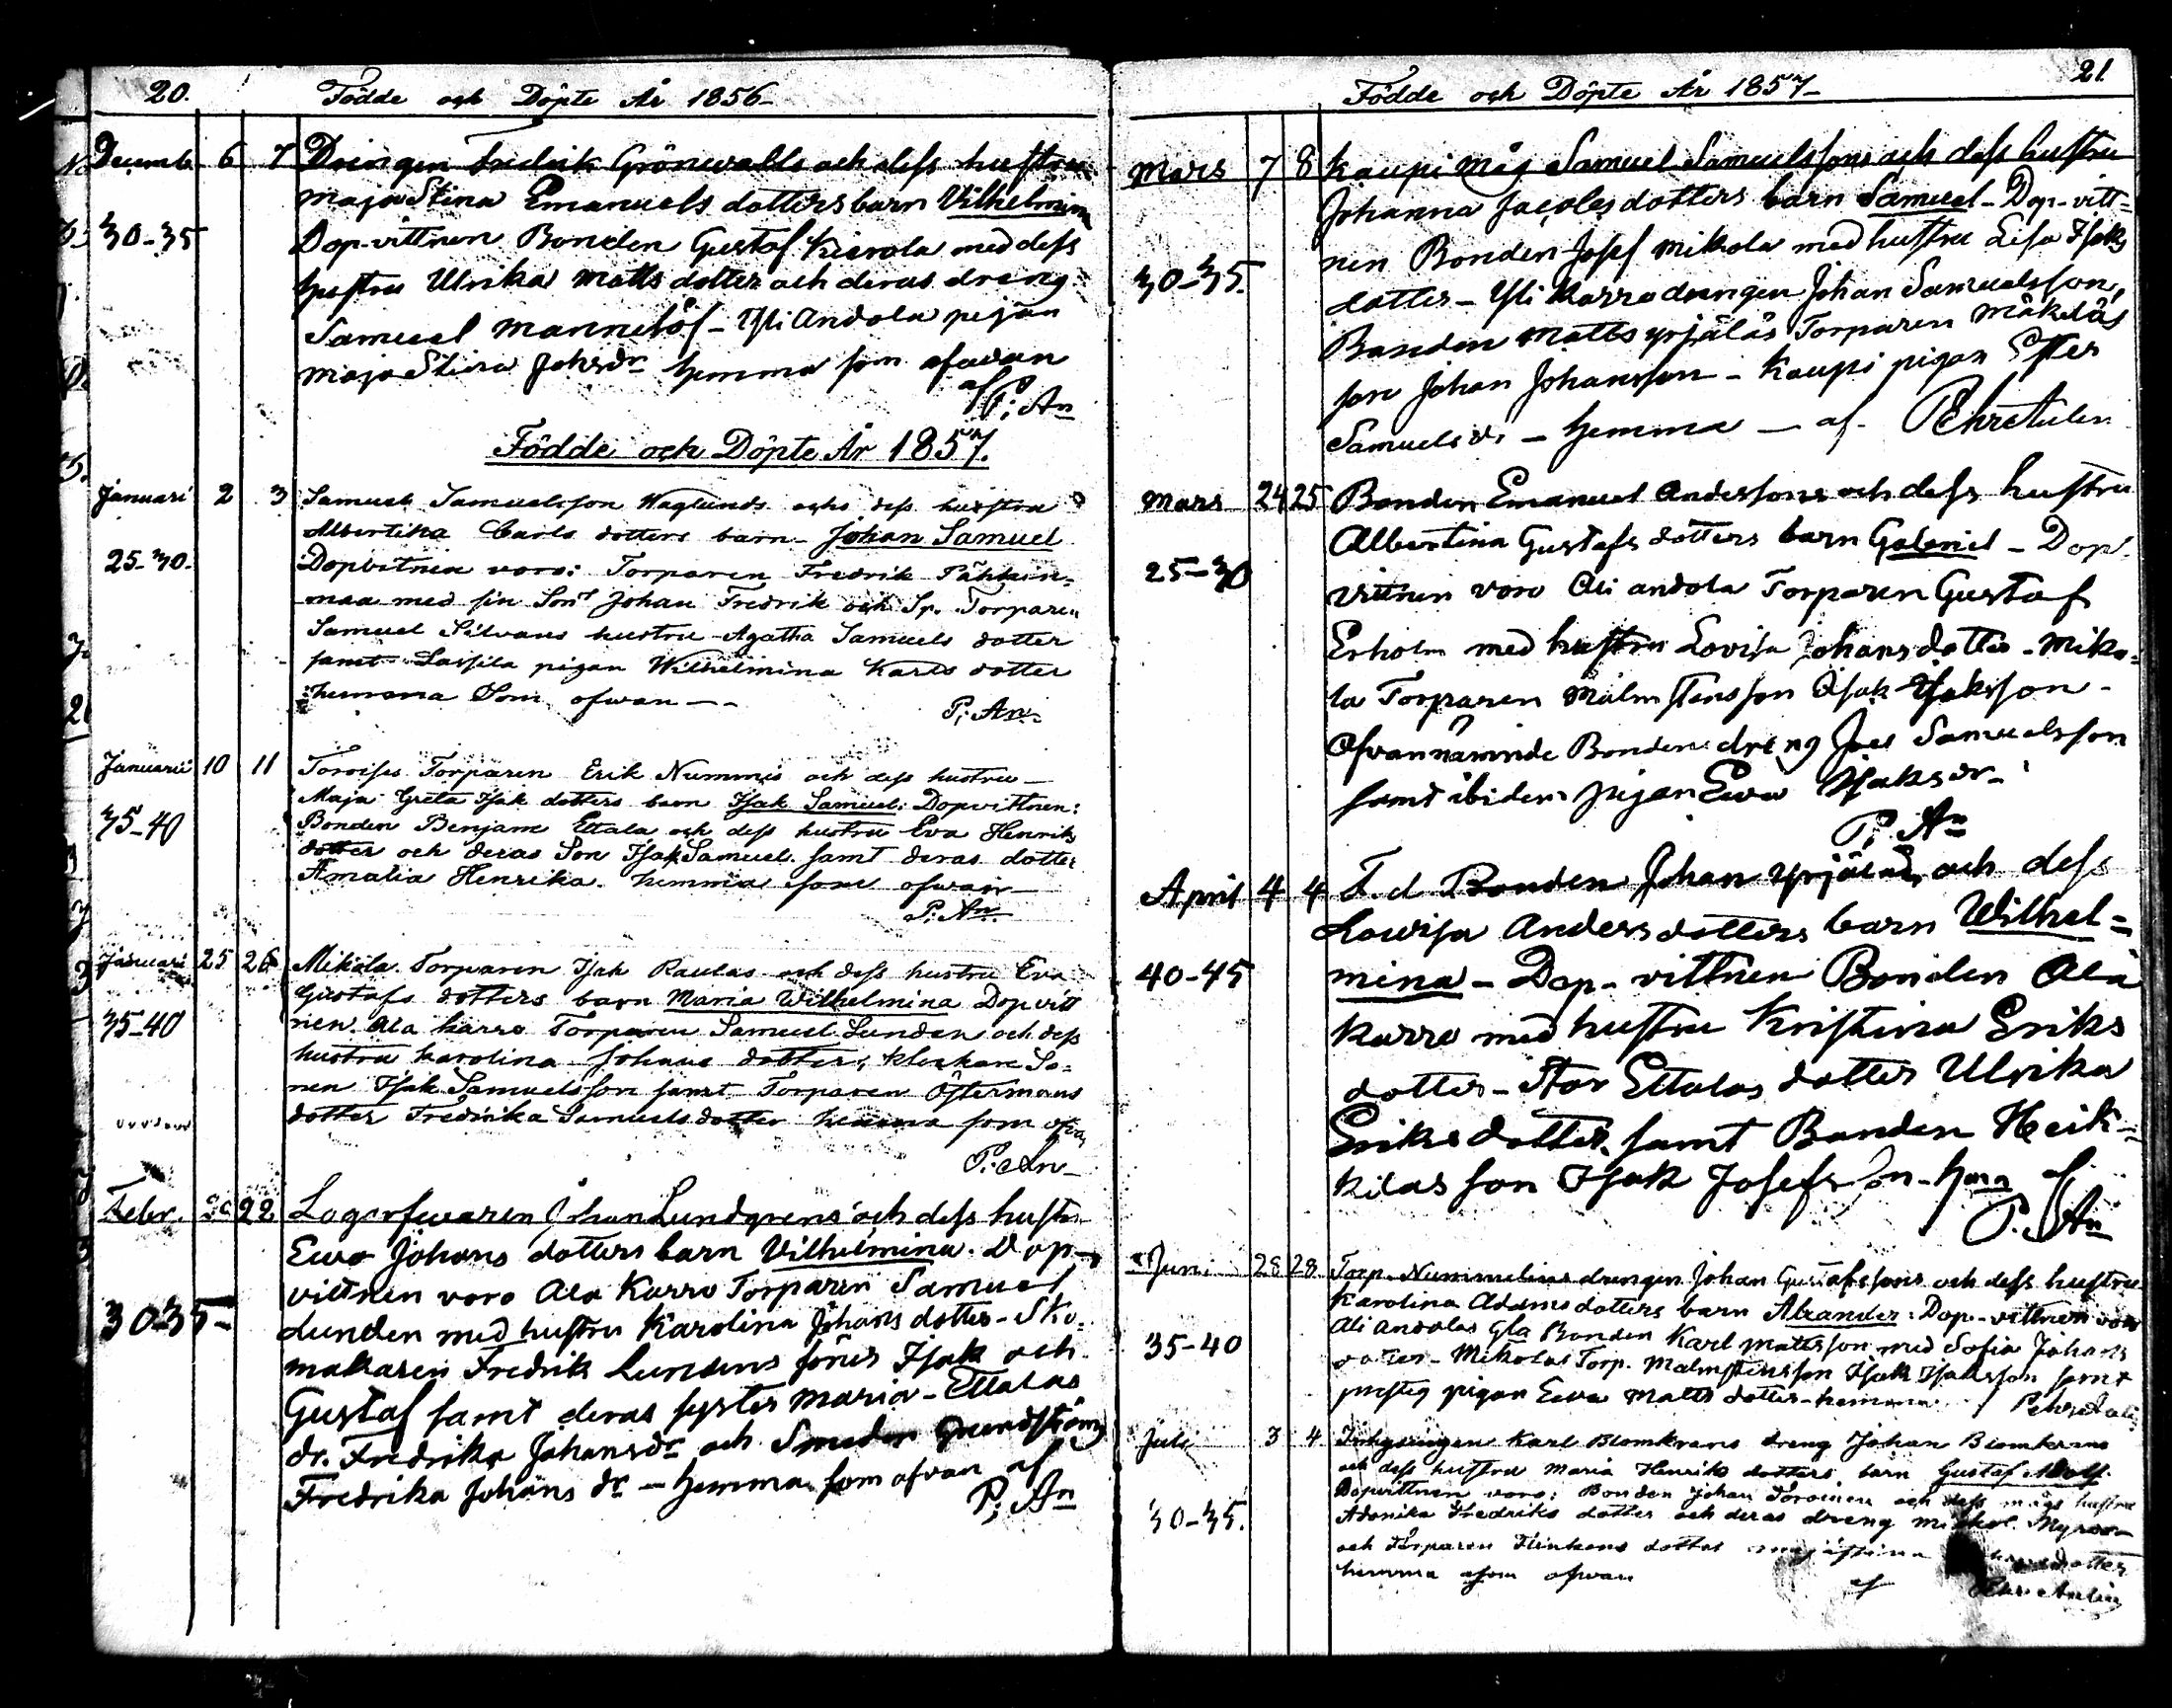 20.
Födde och Döpte År 1856-
Decemb. 6 7 Drängen Fredrik Grönwalls och dess hustru
Maja Stina Emanuels dotters barn Vilhelmina
30-35 Dop-vittnen Bonden Gustaf Kierola med dess
hustru Ulrika Matts dotter och deras dreng
Samuel Mannelöf - Yli Andola pigan
Maja Stina Johsdr hemma som ofvan
af P; An
Födde och Döpte År 1857.
Januari 2 3 Samuel Samuelsson Waglunds och dess hustru
Albertika Carls dotters barn - Johan Samuel
25-30. Dopvitnen voro: Torparen Fredrik Pähkin=
maa med sin Son Johan Fredrik och Sp. Torparen
Samuel Silvans hustru Agatha Samuels dotter
samt Lassila pigan Wilhelmina Karls dotter
hemma Som ofwan --
P; An-
Januarii 10 11 Toroises Torparen Erik Nummis och dess hustru
Maja Greta Isak dotters barn Isak Samuel: Dopvittnen:
35-40 Bonden Benjam Ettala och dess hustru Eva Henriks
dotter och deras Son Isak Samuel samt deras dotter
Amalia Henrika. hemma som ofwan
P: An-
Januari 25 26 Mikola Torparen Isak Paulas och dess hustru Eva
Gustafs dotters barn Maria Wilhelmina Dopvitt
35-40 nen. Ala karro Torparen Samuel Lunden och dess
hustru karolina Johans dotter, klockare So=
nen Isak Samuelsson samt Torparen Östermans
dotter Fredrika Samuelsdotter hemma som ofvan
P: An-
Febr. 22 Lagerfwaren Johan Lundgrens och dess hustru
Ewa Johans dotters barn Vilhelmina. Dop-
vittnen voro Ala Karro Torparen Samuel
30-35- Lunden med hustru Karolina Johans dotter - Sko-
makaren Fredrik Lundens söner Isak och
Gustaf samt deras syster Maria - Ettalas
dr. Fredrika Johansdr och Smeden Grundströms
Fredrika Johans dr - hemma som ofvan af
P; An
21
Födde och Döpte År 1857-
Mars 7 8 Kaupi måg Samuel Samuelssons och dess hustru
Johanna Jacobs dotters barn Samuel - Dop-vitt=
nen Bonden Josef Mikola med hustru Lisa Isaks
30-35. dotter - Yli Karro drengen Johan Samuelsson,
Bonden Matts yrjälas Torparen Mäkeläs
son Johan Johansson - Kaupi pigan Ester
Samuelsdr - hemma - af - P Ehr Aulen
Mars 24 25 Bonden Emanuel Anderssons och dess hustru
Albertina Gustafs dotters barn Gabriel - Dop
25-30 vittnen voro Ali andola Torparen Gustaf
Erholm med hustru Lovisa Johans dotter - Miko-
la Torparen Malmstensson Isak Isaksson -
Ofvannämnde Bondens dreng Joes Samuelsson
samt ibidem pigan Ewa Isaksdr -
P; An
April 4 4 F. d Bonden Johan Yrjälas, och dess
Lowisa Anders dotters barn Wilhel=
40-45 mina - Dop-vittnen Bonden Ala
Karro med hustru Kristina Eriks
dotter - Stor Ettalas dotter Ulrika
Eriks dotter. samt Bonden Heik=
kilas son Isak Josefsson - hem af
P. An
Juni 28 28 Torp. Nummelins drengen Johan Gustafssons och dess hustru
Karolina Adams dotters barn Alxander: Dop-vittnen voro
Ali Andolas Gla Bonden Karl Mattsson med Sofia Johans
35-40 dotter - Mikolas Torp. Malmstensson Isak Isaksson samt
pigan Ewa Matts dotter - hemma
Juli 3 4 Karl Blomkrans dreng Johan Blomkrans
och dess hustru Maria Henriks dotters barn Gustaf Adolf.
Dopvittnen voro: Bonden Johan Toroinen och dess mågs hustru
30-35. Adonika Fredriks dotter och deras dreng
och Torparen dotter
hemma som ofwan af